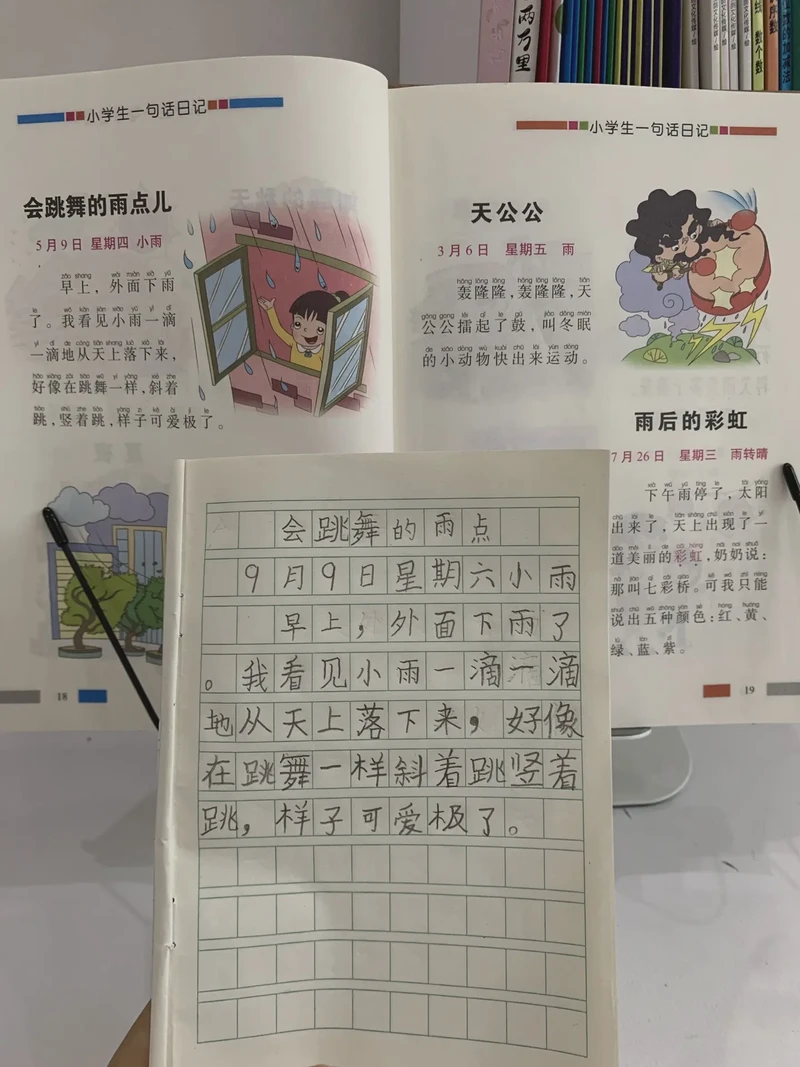 两万里
小学生一句话日记
会跳舞的雨点儿
5月9日 星期四 小雨
zǎo shang wài miàn xià yǔ
早上，外面下雨
le wǒ kàn jiàn xiǎo yǔ yì dī
了。我看见小雨一滴
yì dī de cóng tiān shang luò xià lái
一滴地从天上落下来，
hǎo xiàng zài tiào wǔ yí yàng xié zhe
好像在跳舞一样，斜着
tiào shù zhe tiào yàng zi kě ài jí le
跳，竖着跳，样子可爱极了。
18
小学生一句话日记
天公公
3月6日 星期五 雨
hōng lōng lōng hōng lōng lōng tiān
轰隆隆，轰隆隆，天
公公擂起了鼓，叫冬眠
的小动物快出来运动。
雨后的彩虹
7月26日 星期三 雨转晴
xià wǔ yǔ tíng le tài yáng
下午雨停了，太阳
出来了，天上出现了一
道美丽的彩虹，奶奶说：
那叫七彩桥。可我只能
说出五种颜色：红、黄、
绿、蓝、紫。
19
会跳舞的雨点
9月9日星期六小雨
早上，外面下雨了
。我看见小雨一滴一滴
地从天上落下来，好像
在跳舞一样斜着跳竖着
跳，样子可爱极了。